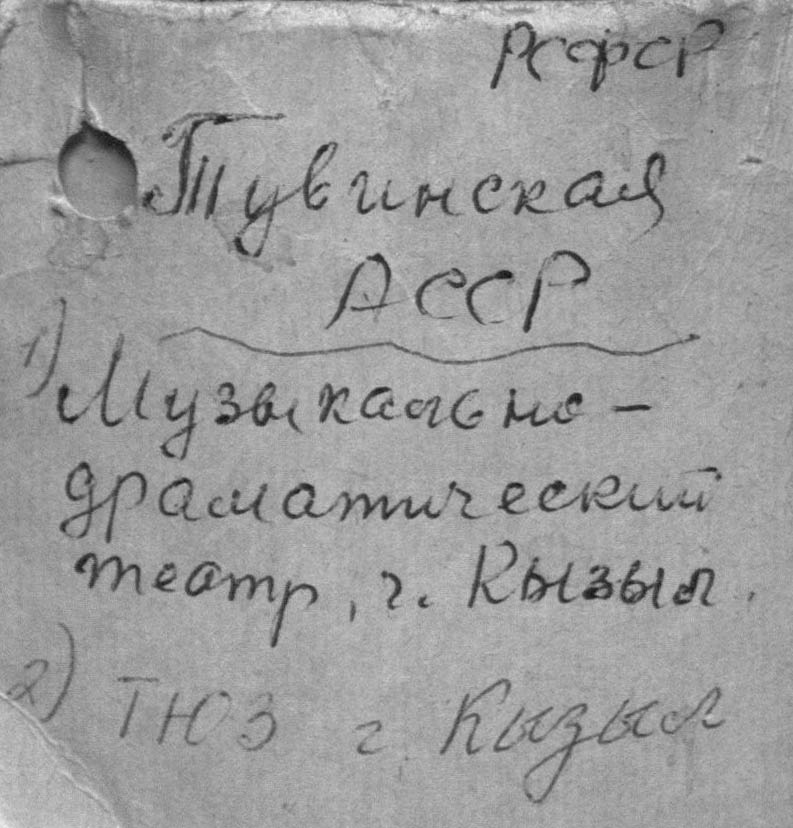 РСФСР
Тувинская
АССР
1) Музыкально-
драматический
театр, г. Кызыл.
2) ТЮЗ г. Кызыл